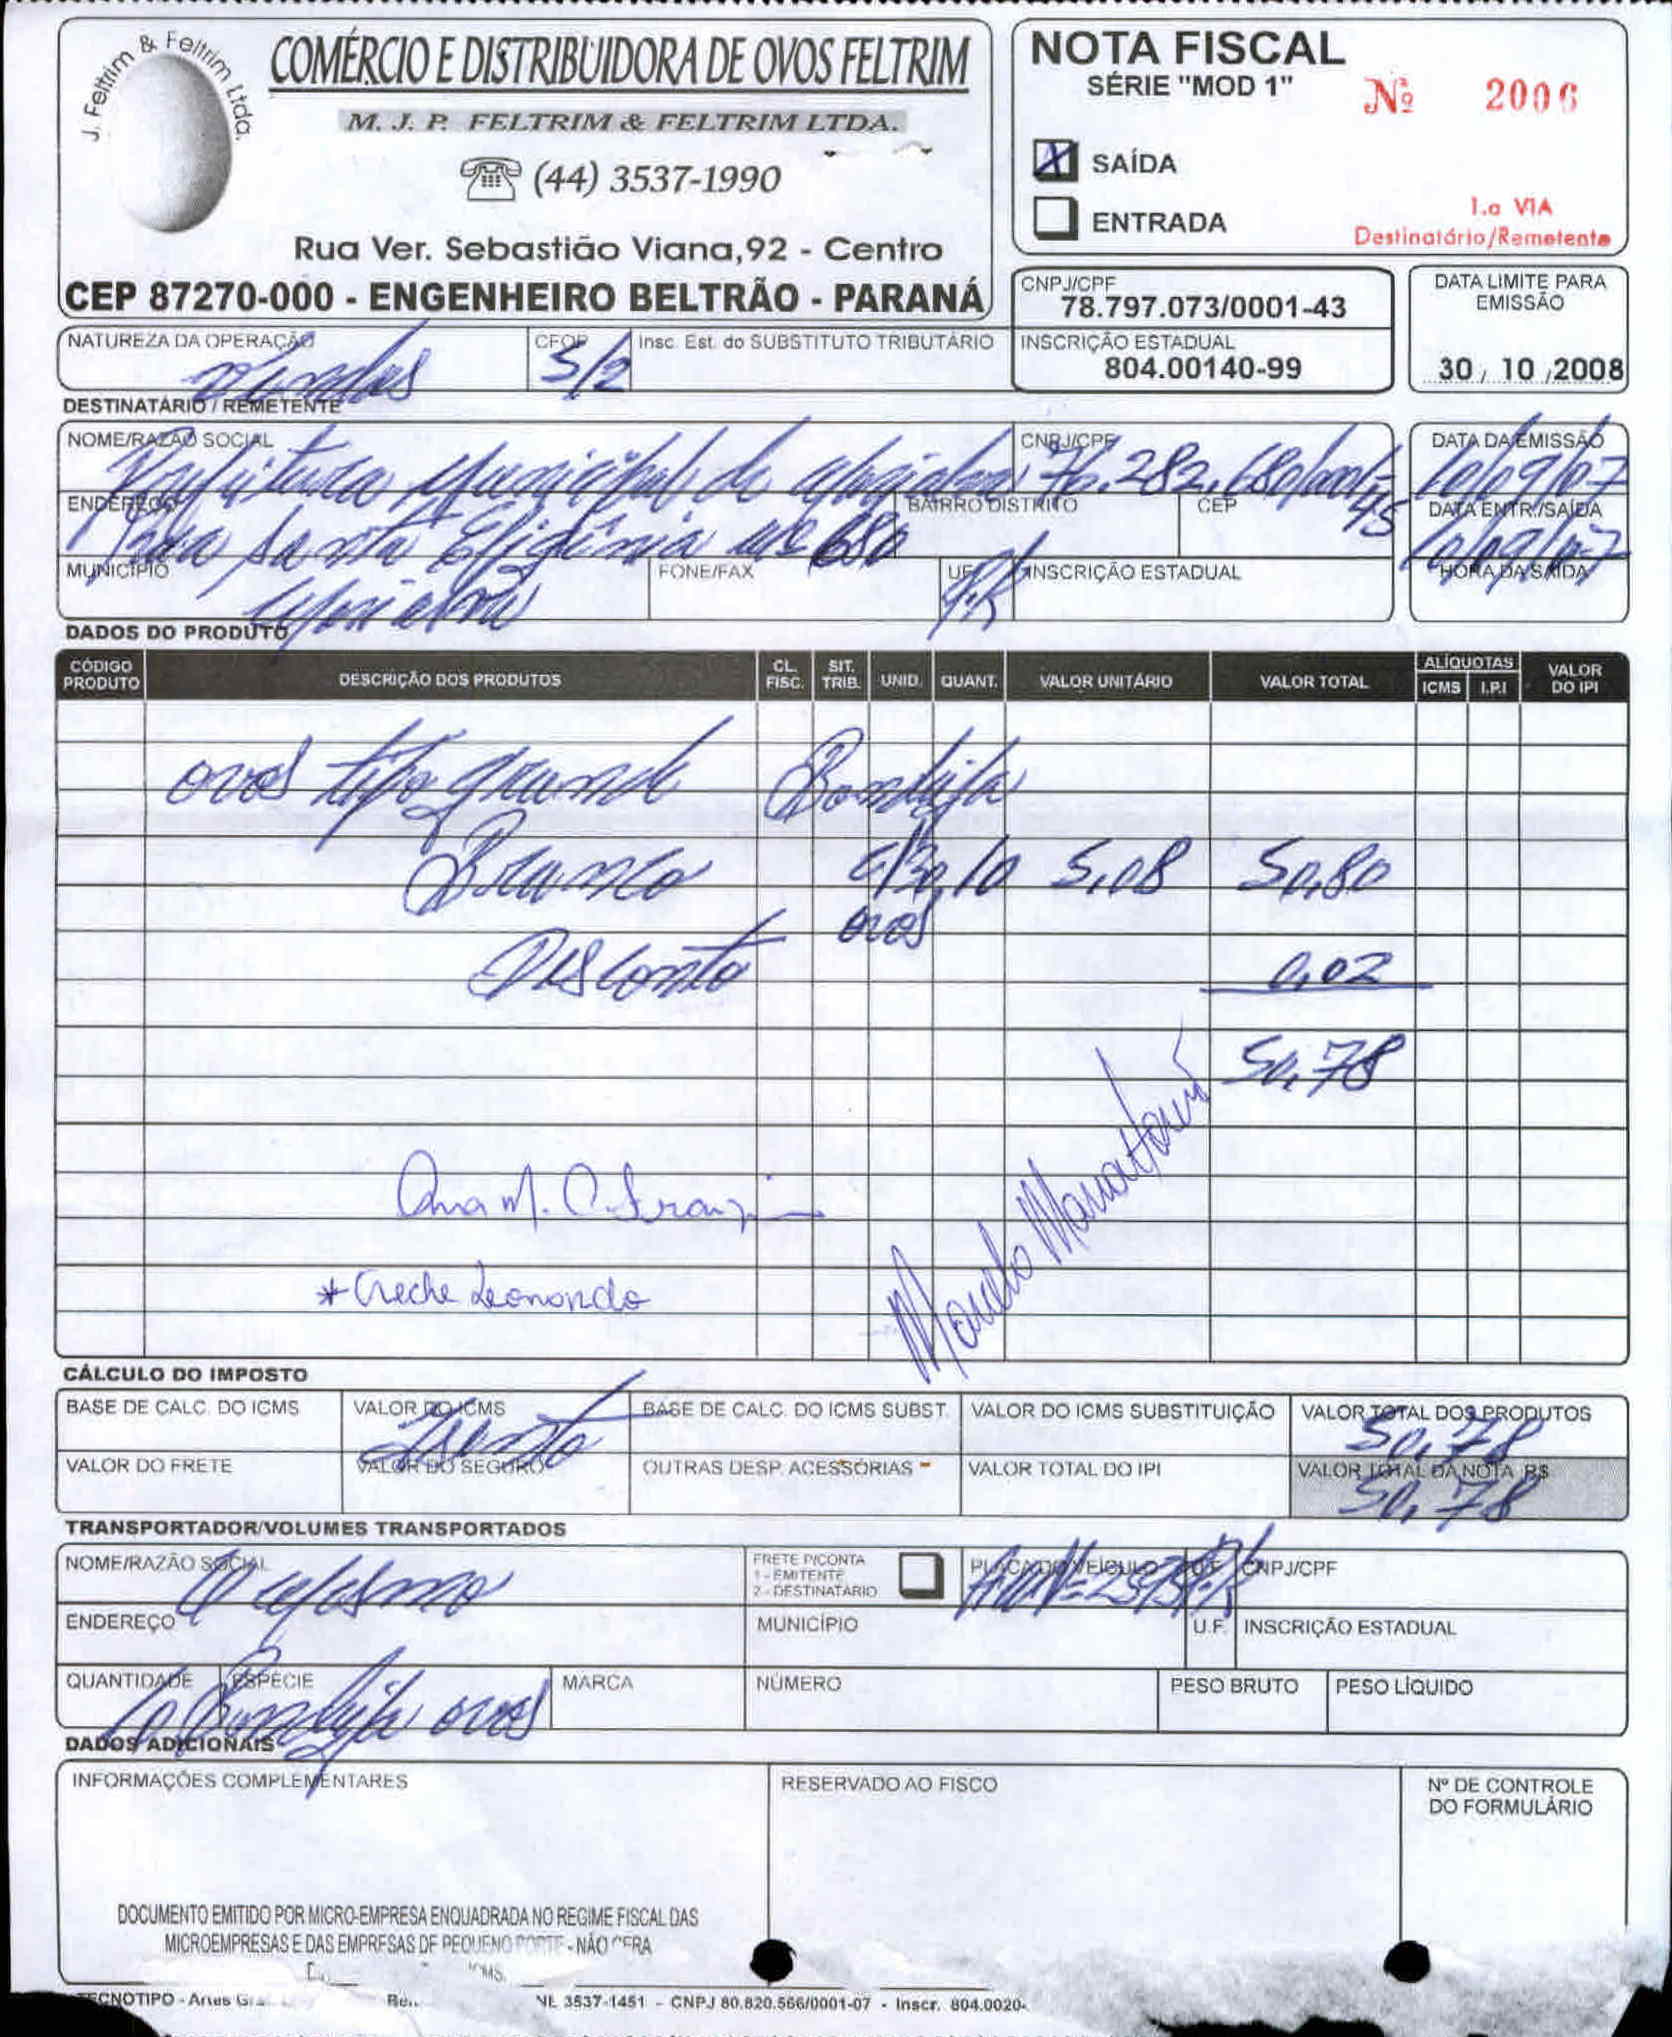 J. Feltrim & Feltrim Ltda.
COMÉRCIO E DISTRIBUIDORA DE OVOS FELTRIM
M. J. P. FELTRIM & FELTRIM LTDA.
(44) 3537-1990
Rua Ver. Sebastião Viana,92 - Centro
CEP 87270-000 - ENGENHEIRO BELTRÃO - PARANÁ
NOTA FISCAL
SÉRIE "MOD 1"
Nº 2006
X SAÍDA
ENTRADA
1.a VIA
Destinatário/Remetente
CNPJ/CPF
78.797.073/0001-43
DATA LIMITE PARA
EMISSÃO
30 / 10 / 2008
NATUREZA DA OPERAÇÃO
Vendas
CFOP
512
Insc. Est. do SUBSTITUTO TRIBUTÁRIO
INSCRIÇÃO ESTADUAL
804.00140-99
DESTINATÁRIO / REMETENTE
NOME/RAZÃO SOCIAL
Prefeitura Municipal de
CNPJ/CPF
76.282.680/0001-45
DATA DA EMISSÃO
10/09/07
ENDEREÇO
Rua Santa Efigênia nº 680
BAIRRO DISTRITO
CEP
DATA ENTR./SAÍDA
10/09/07
MUNICÍPIO
FONE/FAX
UF
P.R
INSCRIÇÃO ESTADUAL
HORA DA SAÍDA
DADOS DO PRODUTO
CÓDIGO PRODUTO DESCRIÇÃO DOS PRODUTOS CL. FISC. SIT. TRIB. UNID. QUANT. VALOR UNITÁRIO VALOR TOTAL ALÍQUOTAS ICMS I.P.I VALOR DO IPI
ovos tipo grande Bandeja
Branco c/30 10 5,08 50,80
ovos
Desconto 0,02
50,78
Ana M. C.
* Creche Leonardo
CÁLCULO DO IMPOSTO
BASE DE CALC. DO ICMS
VALOR DO ICMS
Isento
BASE DE CALC. DO ICMS SUBST.
VALOR DO ICMS SUBSTITUIÇÃO
VALOR TOTAL DOS PRODUTOS
50,78
VALOR DO FRETE
VALOR DO SEGURO
OUTRAS DESP. ACESSÓRIAS
VALOR TOTAL DO IPI
VALOR TOTAL DA NOTA R$
50,78
TRANSPORTADOR/VOLUMES TRANSPORTADOS
NOME/RAZÃO SOCIAL
O mesmo
FRETE P/CONTA
1 - EMITENTE
2 - DESTINATÁRIO
PLACA DO VEÍCULO
U.F.
CNPJ/CPF
ENDEREÇO
MUNICÍPIO
U.F.
INSCRIÇÃO ESTADUAL
QUANTIDADE
10
ESPÉCIE
Bandeja ovos
MARCA
NÚMERO
PESO BRUTO
PESO LÍQUIDO
DADOS ADICIONAIS
INFORMAÇÕES COMPLEMENTARES
RESERVADO AO FISCO
Nº DE CONTROLE
DO FORMULÁRIO
DOCUMENTO EMITIDO POR MICRO-EMPRESA ENQUADRADA NO REGIME FISCAL DAS
MICROEMPRESAS E DAS EMPRESAS DE PEQUENO PORTE - NÃO GERA
ICMS.
3537-1451 - CNPJ 80.820.566/0001-07 - Inscr. 804.0020-